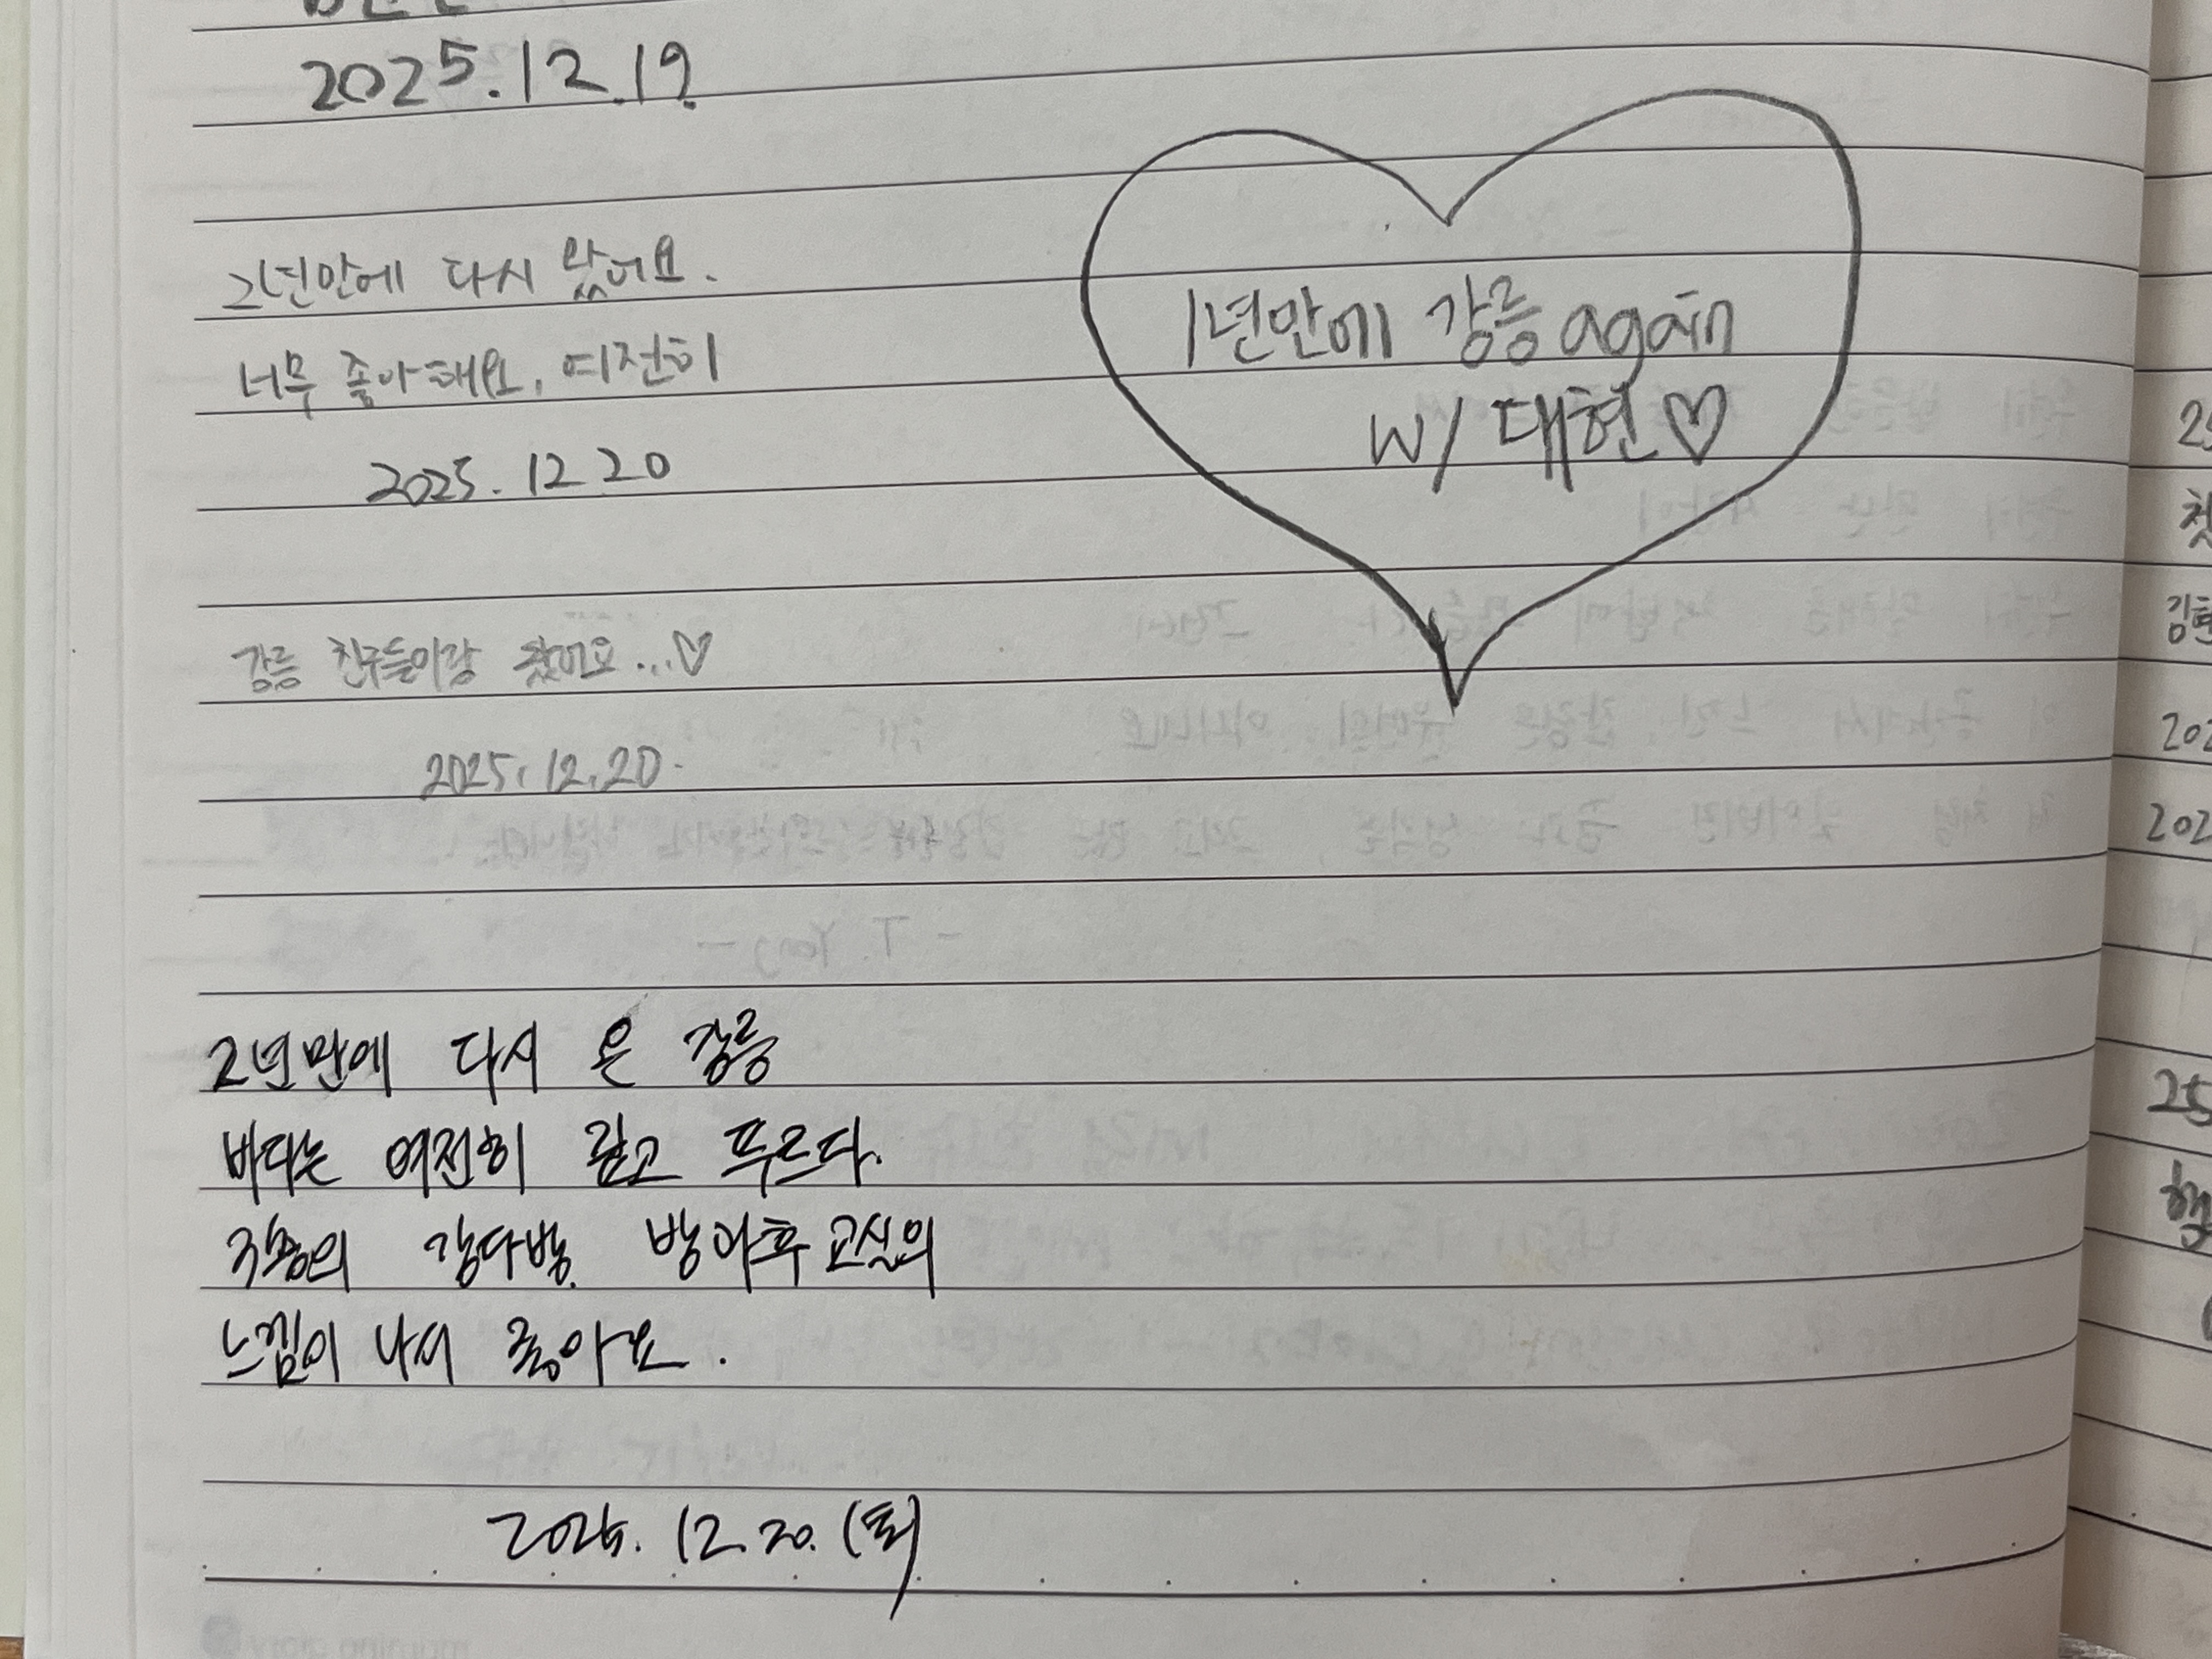 2025.12.19.
2년만에 다시 왔어요.
너무 좋아해요, 여전히
2025. 12 20
1년만에 강릉 again
w/ 대현♡
강릉 친구들이랑 왔어요...♡
2025.12.20.
2년만에 다시 온 강릉
바다는 여전히 깊고 푸르다.
강다방. 방과후 교실의
느낌이 나서 좋아요.
2025. 12. 20. (토)